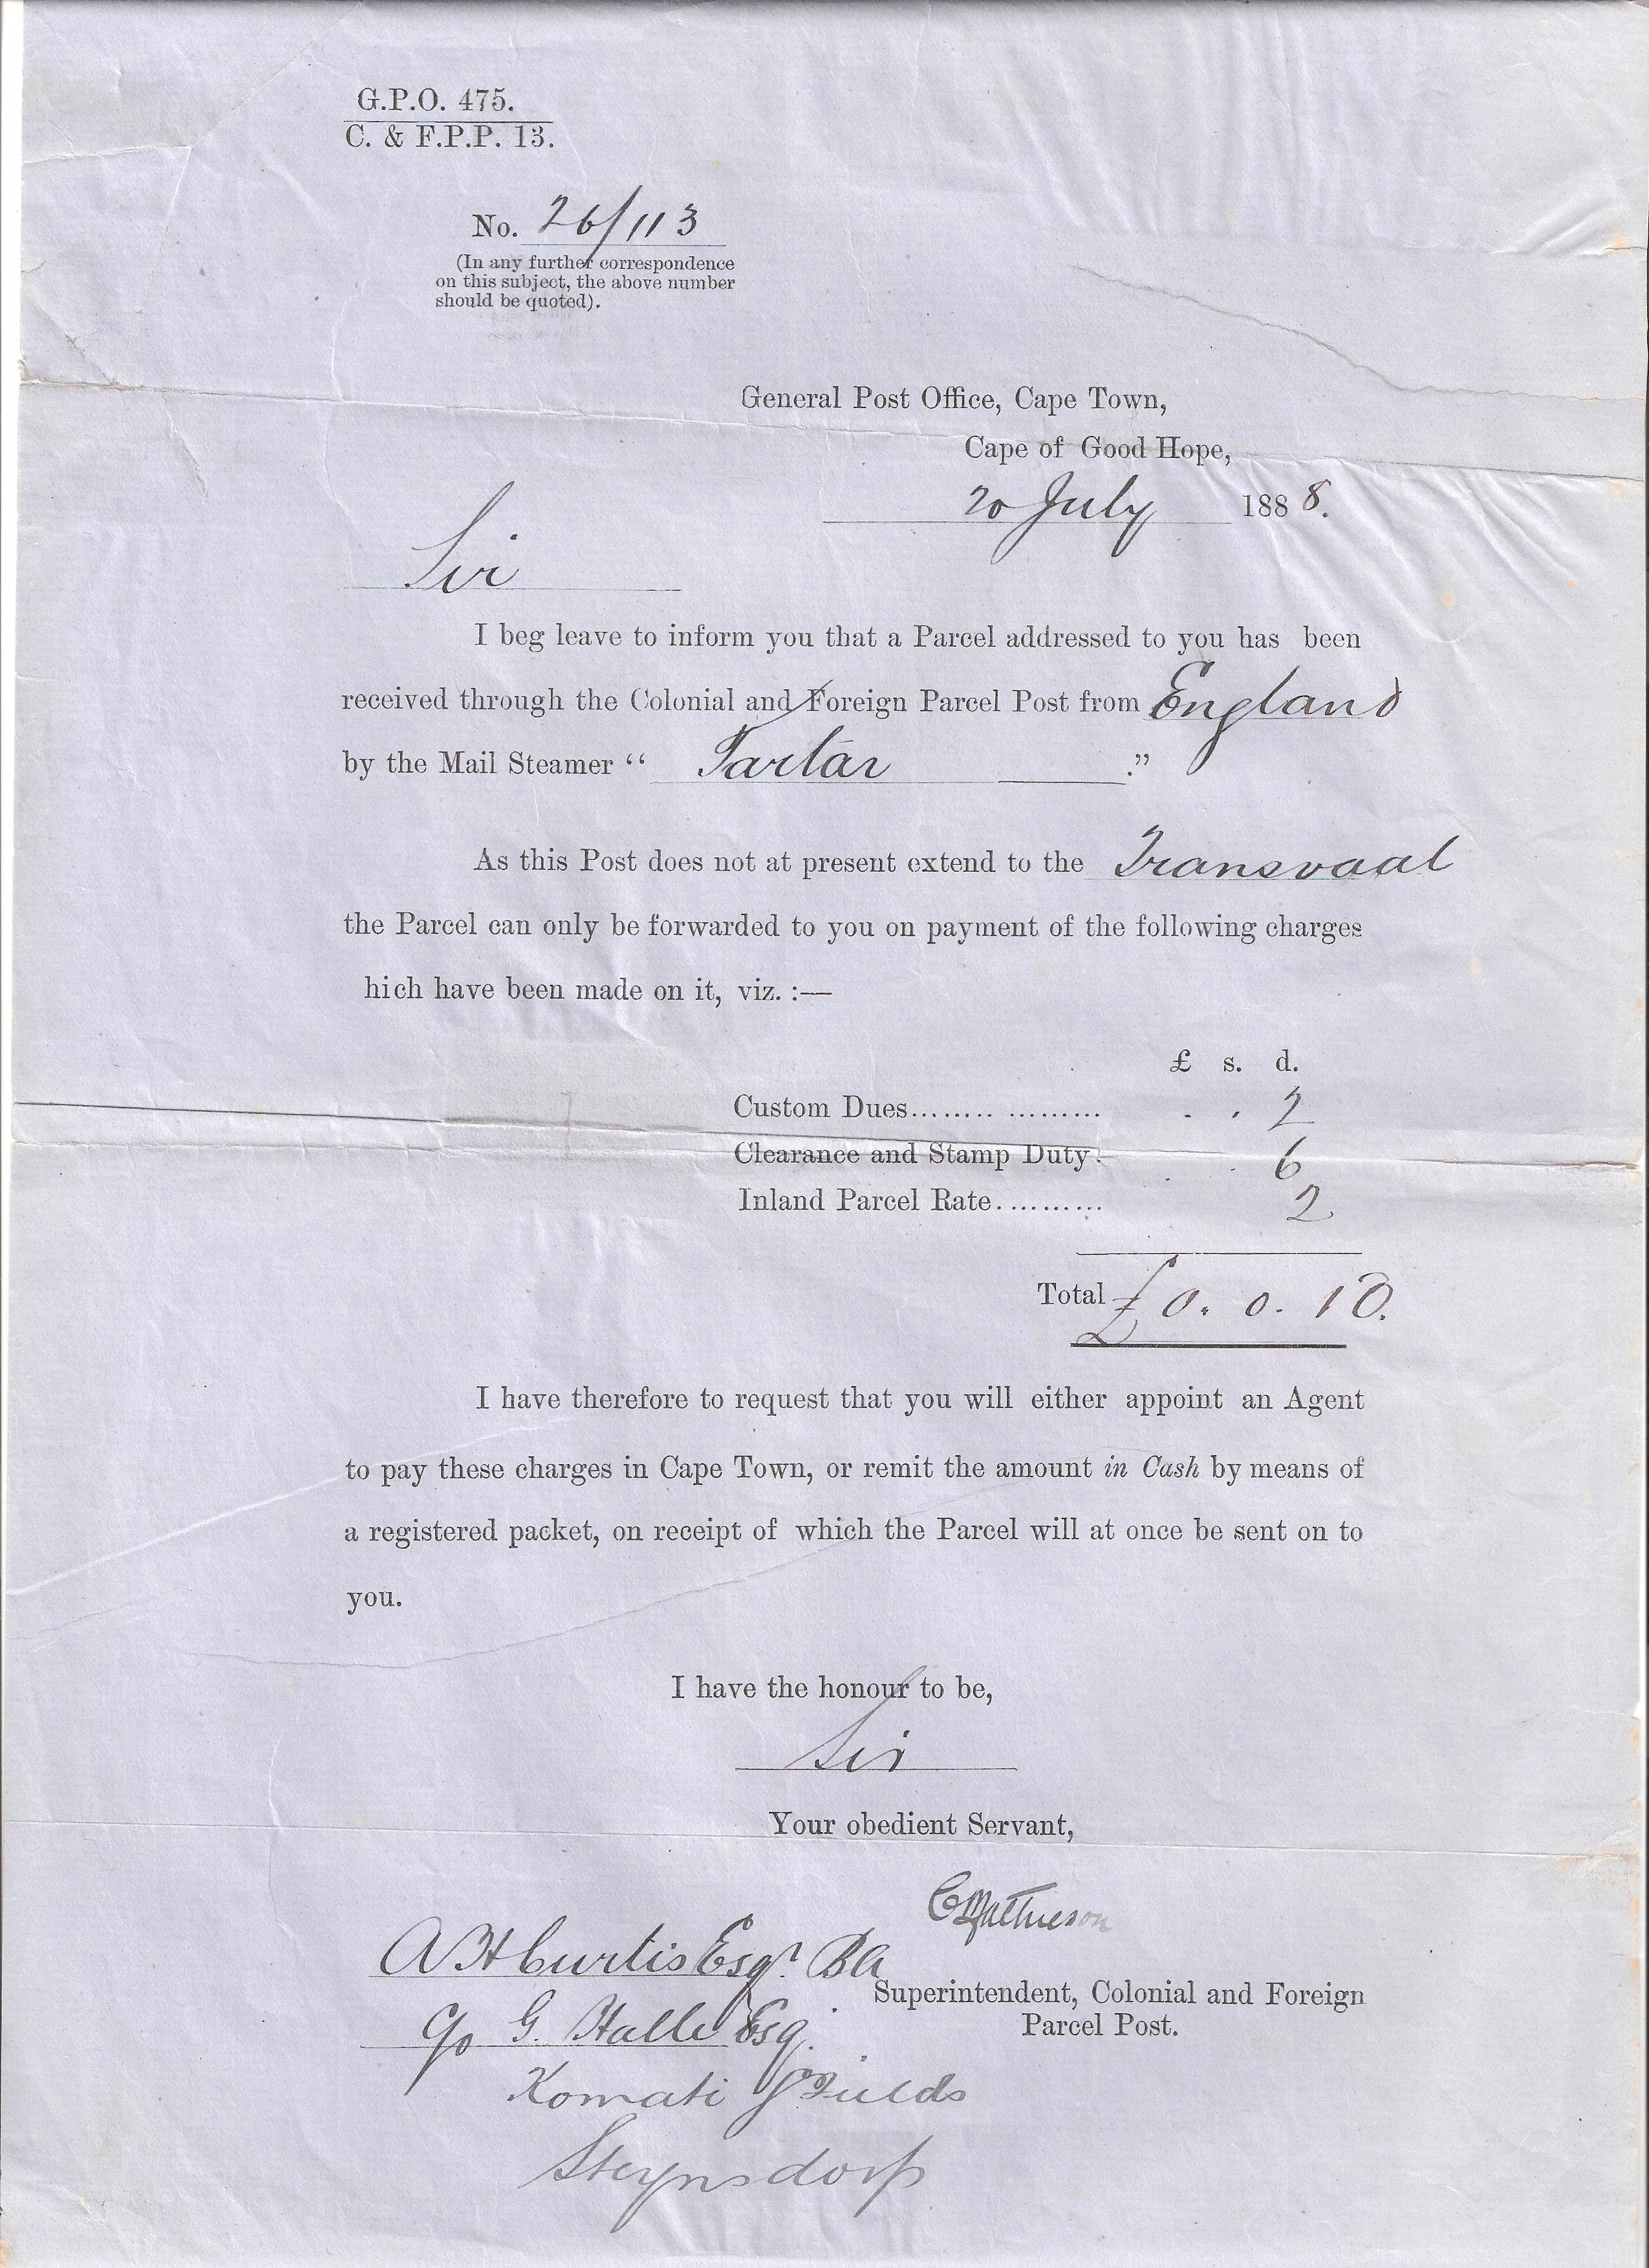 G.P.O. 475.
C. & F.P.P. 13.
No. 26/113
(In any further correspondence
on this subject, the above number
should be quoted).
General Post Office, Cape Town,
Cape of Good Hope,
20 July 1888.
Sir
I beg leave to inform you that a Parcel addressed to you has been
received through the Colonial and Foreign Parcel Post from England
by the Mail Steamer “ Tartar .”
As this Post does not at present extend to the Transvaal
the Parcel can only be forwarded to you on payment of the following charges
hich have been made on it, viz. :—
£ s. d.
Custom Dues........ ......... . . 2
Clearance and Stamp Duty. . . 6
Inland Parcel Rate.......... 2
Total £0. 0. 10.
I have therefore to request that you will either appoint an Agent
to pay these charges in Cape Town, or remit the amount in Cash by means of
a registered packet, on receipt of which the Parcel will at once be sent on to
you.
I have the honour to be,
Sir
Your obedient Servant,
C Mathieson
Superintendent, Colonial and Foreign
Parcel Post.
A H Curtis Esqr. BA
c/o G. Halle Esq.
Komati Fields
Steynsdorp